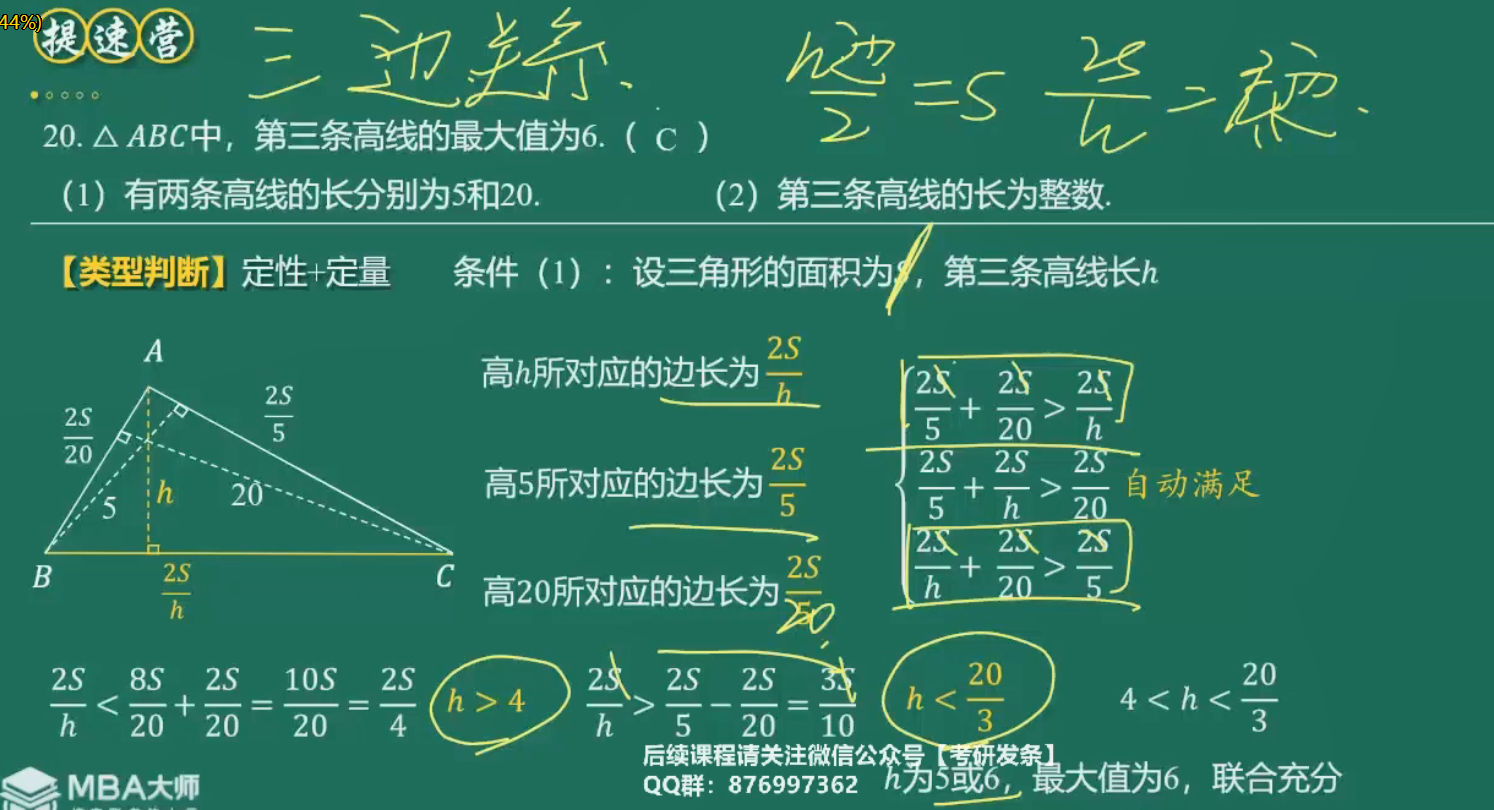 44%)
提速营
三边关系.
h边/2 = S 2S/h = 底边.
20. △ABC中，第三条高线的最大值为6.（ C ）
（1）有两条高线的长分别为5和20.
（2）第三条高线的长为整数.
【类型判断】定性+定量
条件（1）：设三角形的面积为S，第三条高线长h
A
2S/20
2S/5
5
h
20
B
C
2S/h
高h所对应的边长为2S/h
高5所对应的边长为2S/5
高20所对应的边长为2S/5
20
2S/5 + 2S/20 > 2S/h
2S/5 + 2S/h > 2S/20 自动满足
2S/h + 2S/20 > 2S/5
2S/h < 8S/20 + 2S/20 = 10S/20 = 2S/4 h > 4
2S/h > 2S/5 − 2S/20 = 3S/10 h < 20/3
4 < h < 20/3
后续课程请关注微信公众号【考研发条】
QQ群：876997362
h为5或6，最大值为6，联合充分
MBA大师